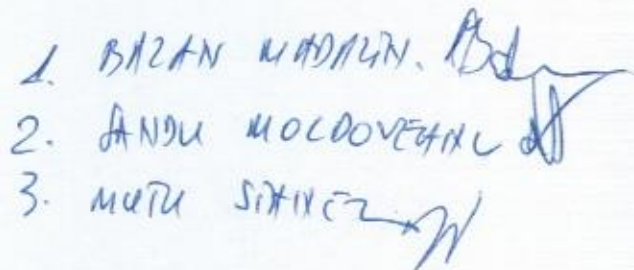 1. BAZAN MADALIN.
2. SANDU MOLDOVEANU
3. MUTU